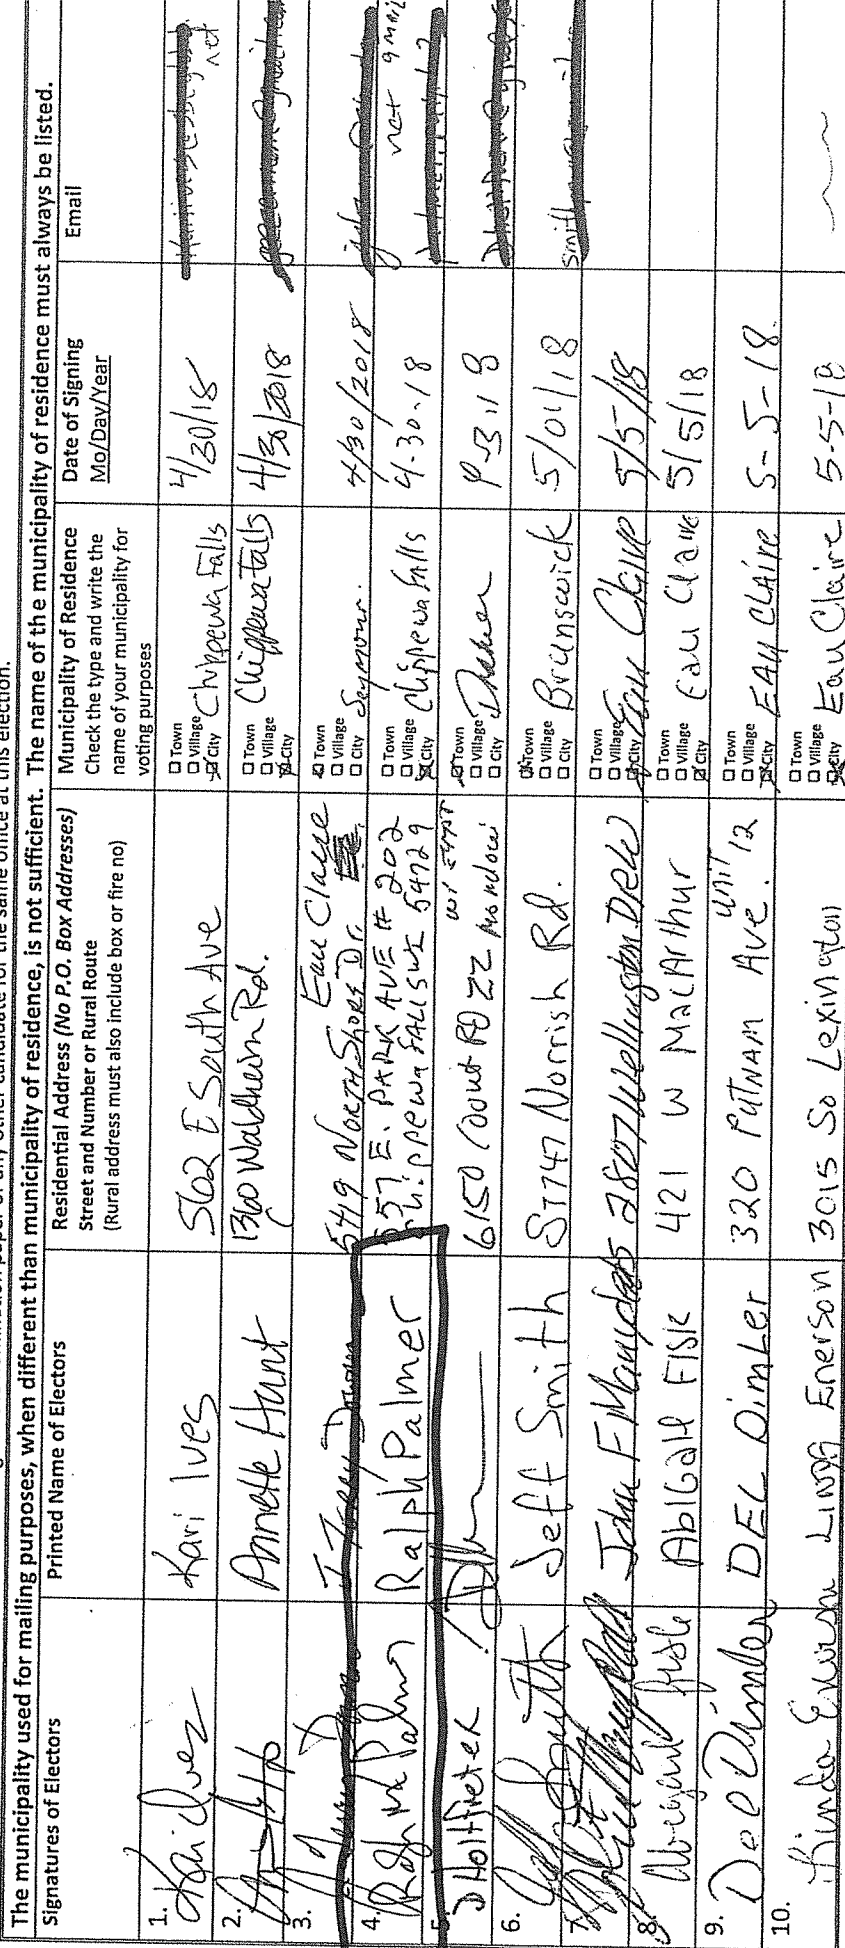 The municipality used for mailing purposes, when different than municipality of residence, is not sufficient. The name of the municipality of residence must always be listed.
Signatures of Electors
Printed Name of Electors
Residential Address (No P.O. Box Addresses)
Street and Number or Rural Route
(Rural address must also include box or fire no)
Municipality of Residence
Check the type and write the
name of your municipality for
voting purposes
Date of Signing
Mo/Day/Year
Email
1.
Kari Ives
Kari Ives
562 E South Ave
Town
Village
City
Chippewa Falls
4/30/18
net
2.
Annette Hunt
1360 Waldheim Rd.
Town
Village
City
Chippewa Falls
4/30/2018
3.
5419 North Shore Dr.
Eau Claire
Town
Village
City
Seymour.
4/30/2018
4.
Ralph Palmer
Ralph Palmer
557 E. PARK AVE # 202
Chippewa FALLS WI 54729
Town
Village
City
Chippewa Falls
4-30-18
not gmail
5.
D Holtfreter
6150 Count RD ZZ Mondovi
Town
Village
City
6.
Jeff Smith
Jeff Smith
S7747 Norrish Rd.
Town
Village
City
Brunswick
5/01/18
smith
7.
John F
2807 Wellington Drew
Town
Village
City
Eau Claire
5/5/18
8.
Abigail Fisk
Abigail Fisk
421 W MacArthur
Town
Village
City
Eau Claire
5/5/18
9.
Del Dimler
DEL DimLer
320 PUTNAM Ave. UNIT 12
Town
Village
City
EAU CLAIRE
5-5-18.
10.
Linda Enerson
LINDA Enerson
3015 So Lexington
Town
Village
City
Eau Claire
5-5-18